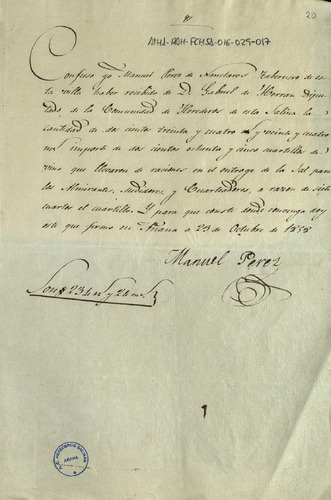 20
ATHA-DAH-FCMSA-016-029-017
Confieso yo Manuel Perez de Nanclares Tabernero de es
ta villa haber recibido de D. Gabriel de Herran Dipu
tado de la Comunidad de Herederos de estas Salinas la
cantidad de dos cientos treinta y cuatro y veinte y cuatro
importe de dos cientos ochenta y cinco cuartillos de
vino que llevaron de raciones en el entrage de la Sal para
los Almirantes, Medidores, y Cuarteadores, a razon de siete
cuartos el cuartillo. Y para que conste donde convenga doy
este que firmo en Añana a 23 de Octubre de 1855
Manuel Perez
Son 234 y 24
1
AÑANA